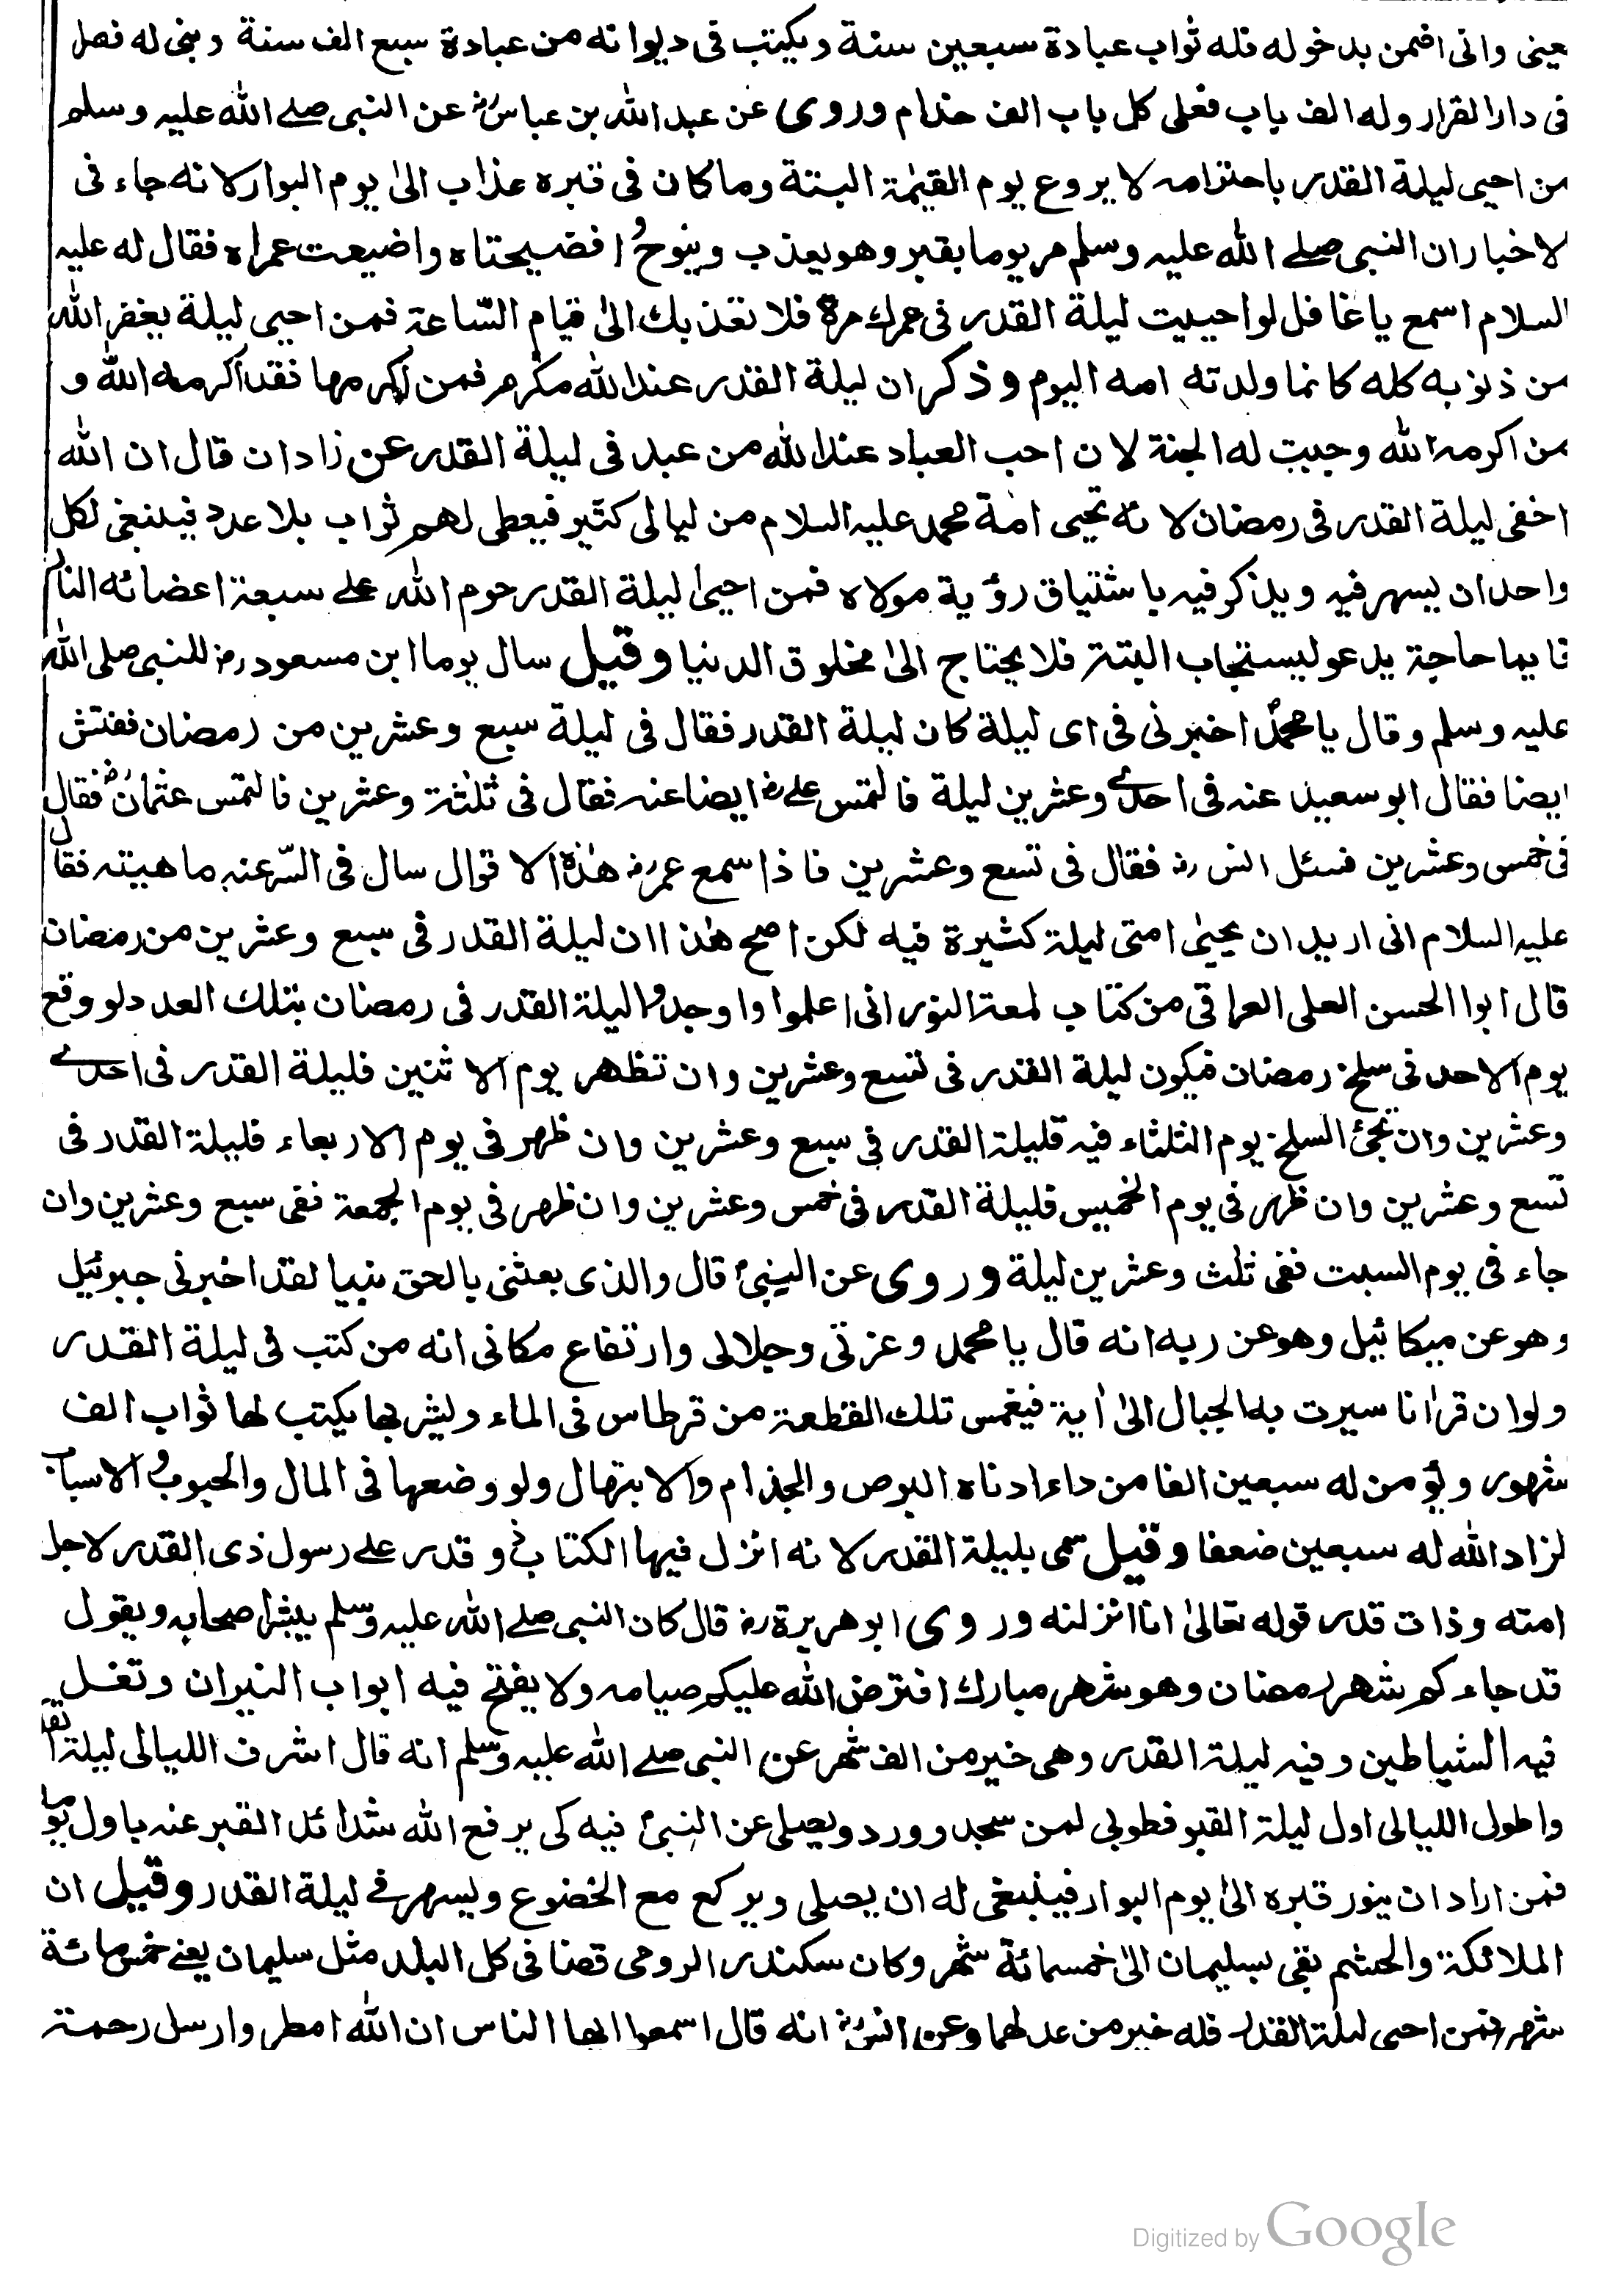 عينى وانى اضمن بدخوله فله ثواب عبادة سبعين سنة ويكتب فى ديوانه من عبادة سبع الف سنة وبنى له فصل
فى دار القرار وله الف باب فعلى كل باب الف خدام وروى عن عبد الله بن عباس رض عن النبى صلے الله عليه وسلم
من احيى ليلة القدر باحترامه لا يروع يوم القيٰمة البتة وما كان فى قبره عذاب الىٰ يوم البوار لانه جاء فى
لاخبار ان النبى صلے الله عليه وسلم مر يوما بقبر وهو يعذب وينوح افضيحتاه واضيعت عمراه فقال له عليه
السلام اسمع يا غافل لو احييت ليلة القدر فى عمرك مرة فلا نعذبك الىٰ قيام السّاعة فمن احيى ليلة يغفر الله
من ذنوبه كله كانما ولدته امه اليوم وذكر ان ليلة القدر عند الله مكرم فمن اكرمها فقد اكرمه الله و
من اكرمه الله وجبت له الجنة لان احب العباد عند الله من عبد فى ليلة القدر عن زادان قال ان الله
اخفى ليلة القدر فى رمضان لانه تحيى امة محمد عليه السلام من ليالى كثير فيعطى لهم ثواب بلا عدد فينبغى لكل
واحد ان يسهر فيه ويذكر فيه باشتياق رؤية مولاه فمن احيىٰ ليلة القدر حرم الله علے سبعة اعضائه النار
فايما حاجة يدعو ليستجاب البتة فلا يحتاج الىٰ مخلوق الدنيا وقيل سال يوما ابن مسعود رض للنبى صلى الله
عليه وسلم وقال يا محمد اخبرنى فى اى ليلة كان ليلة القدر فقال فى ليلة سبع وعشرين من رمضان ففتش
ايضا فقال ابو سعيد عنه فى احدے وعشرين ليلة فالتمس على رض ايضا عنه فقال فى ثلٰثة وعشرين فالتمس عثمان رض فقال
فى خمس وعشرين فسئل انس رض فقال فى تسع وعشرين فاذا سمع عمر رض هٰذه الاقوال سال فى السّر عنه ماهيته فقال
عليه السلام انى اريد ان يحيىٰ امتى ليلة كثيرة فيه لكن اصح هٰذا ان ليلة القدر فى سبع وعشرين من رمضان
قال ابوا الحسن العلى العراقى من كتاب لمعة النورانى اعلموا واوجدوا ليلة القدر فى رمضان بتلك العدد لو وقع
يوم الاحد فى سلخ رمضان فيكون ليلة القدر فى تسع وعشرين وان تظهر يوم الاثنين فليلة القدر فى احدے
وعشرين وان تجئ السلخ يوم الثلثاء فيه فليلة القدر فى سبع وعشرين وان ظهر فى يوم الاربعاء فليلة القدر فى
تسع وعشرين وان ظهر فى يوم الخميس فليلة القدر فى خمس وعشرين وان ظهر فى يوم الجمعة ففى سبع وعشرين وان
جاء فى يوم السبت ففى ثلث وعشرين ليلة وروى عن النبىؐ قال والذى بعثنى بالحق نبيا لقد اخبرنى جبرئيل
وهو عن ميكائيل وهو عن ربه انه قال يا محمد وعزتى وجلالى وارتفاع مكانى انه من كتب فى ليلة القدر
ولو ان قراٰنا سيرت به الجبال الىٰ اٰية فيغمس تلك القطعة من قرطاس فى الماء وليشربها يكتب لها ثواب الف
شهور ويؤمن له سبعين الفا من داء ادناه البرص والجذام والابتهال ولو وضعها فى المال والحبوب والاسباب
لزاد الله له سبعين ضعفا وقيل سمى بليلة القدر لانه انزل فيها الكتاب وقدر علے رسول ذى القدر لاجل
امته وذات قدر قوله تعالىٰ انا انزلنه وروى ابو هريرة رض قال كان النبى صلے الله عليه وسلم يبشر اصحابه ويقول
قد جاء كم شهر رمضان وهو شهر مبارك افترض الله عليكم صيامه ولا يفتح فيه ابواب النيران وتغل
فيه الشياطين وفيه ليلة القدر وهى خير من الف شهر عن النبى صلے الله عليه وسلم انه قال اشرف الليالى ليلة القدر
واطول الليالى اول ليلة القبر فطوبى لمن سجد وورد ويصلى عن النبىؐ فيه كى يرفع الله شدائد القبر عنه باول يوما
فمن اراد ان ينور قبره الىٰ يوم البوار فينبغى له ان يصلى ويركع مع الخضوع ويسهر فے ليلة القدر وقيل ان
الملائكة والحشم بقى بسليمان الىٰ خمسمائة شهر وكان سكندر الرومى قضا فى كل البلد مثل سليمان يعنے خمسمائة
شهر فمن احيى ليلة القدر فله خير من عدلهما وعن انس رض انه قال اسمعوا ايها الناس ان الله امطر وارسل رحمة
Digitized by Google